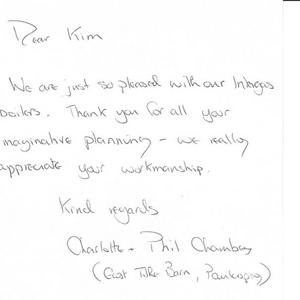 Dear Kim
We are just so pleased with our Intergas
boilers. Thank you for all your
imaginative planning - we really
appreciate your workmanship.
Kind regards
Charlotte + Phil Chambers
(East Tithe Barn,